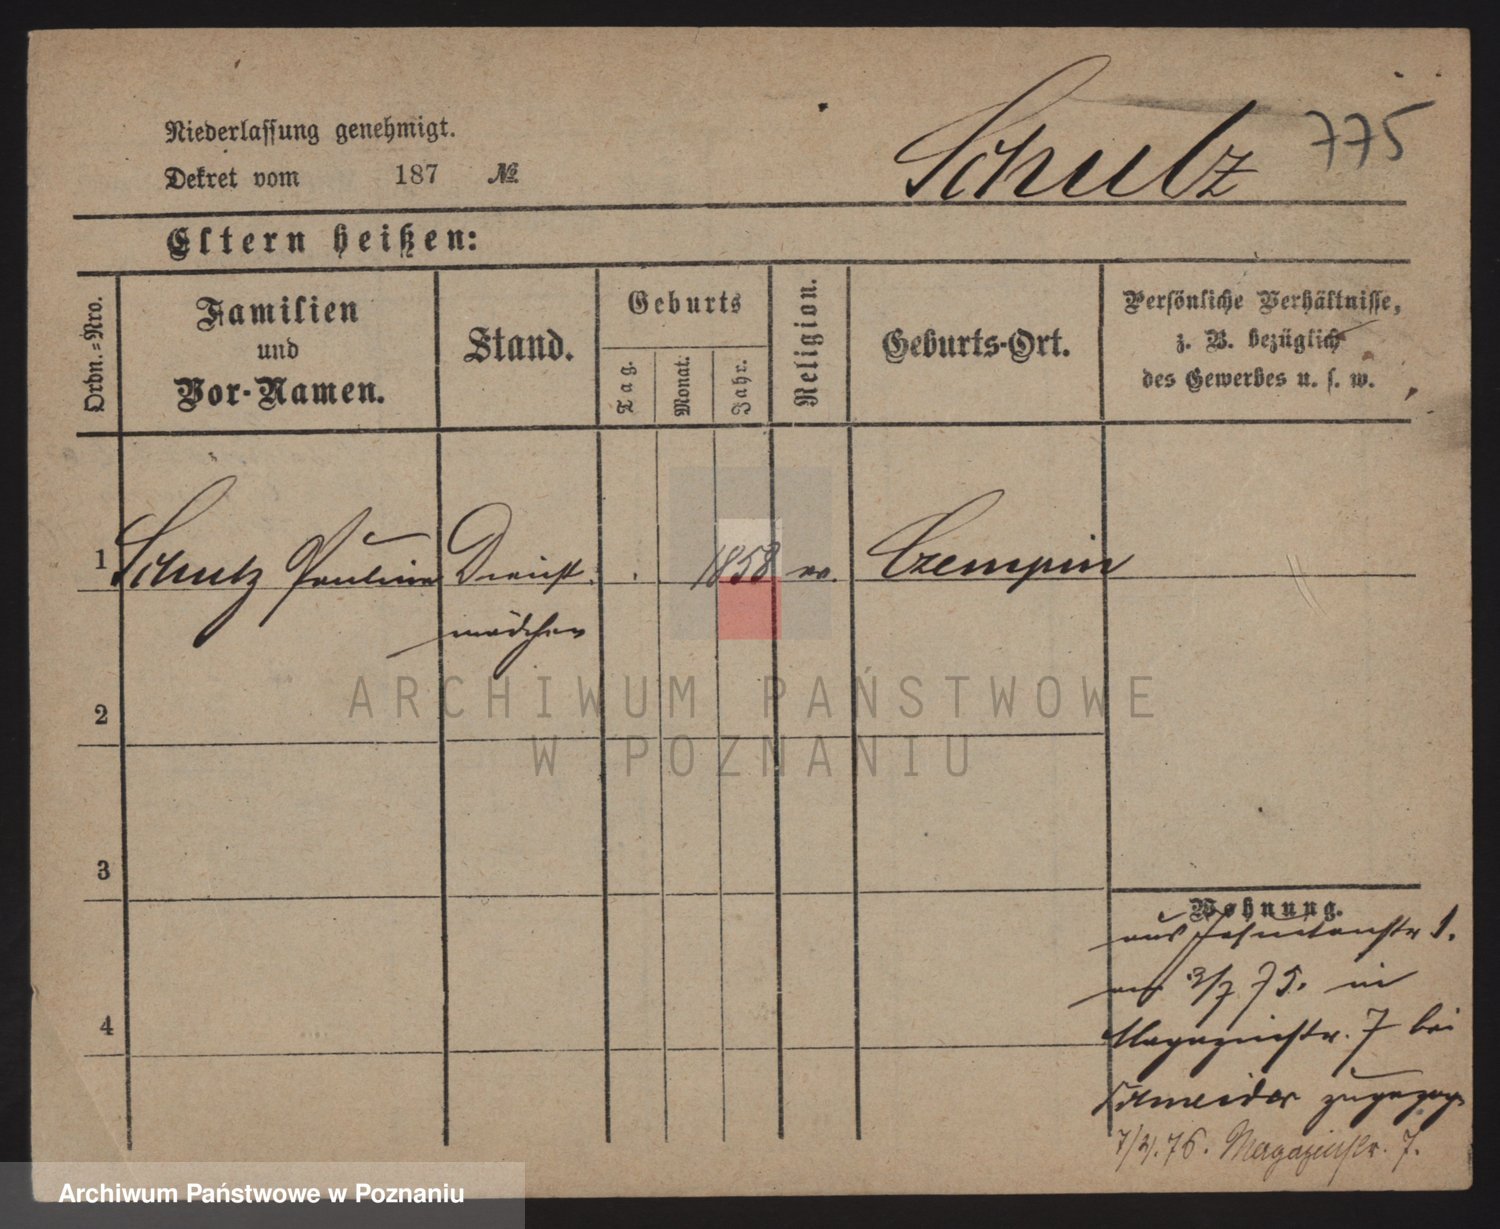 Schulz 775
Niederlassung genehmigt.
Dekret vom 187 №
Eltern heißen:
Ordn.=Nro.
Familien
und
Vor-Namen.
Stand.
Geburts
Tag.
Monat.
Jahr.
Religion.
Geburts-Ort.
Persönliche Verhältnisse,
z. B. bezüglich
des Gewerbes u. s. w.
1 Schulz Pauline Dienst 1858 ev. Czempin
mädchen
2
3
4
Wohnung.
aus 1.
75. in
Magazinstr. 7 bei
Schneider
76. Magazinstr. 7.
ARCHIWUM PAŃSTWOWE
W POZNANIU
Archiwum Państwowe w Poznaniu